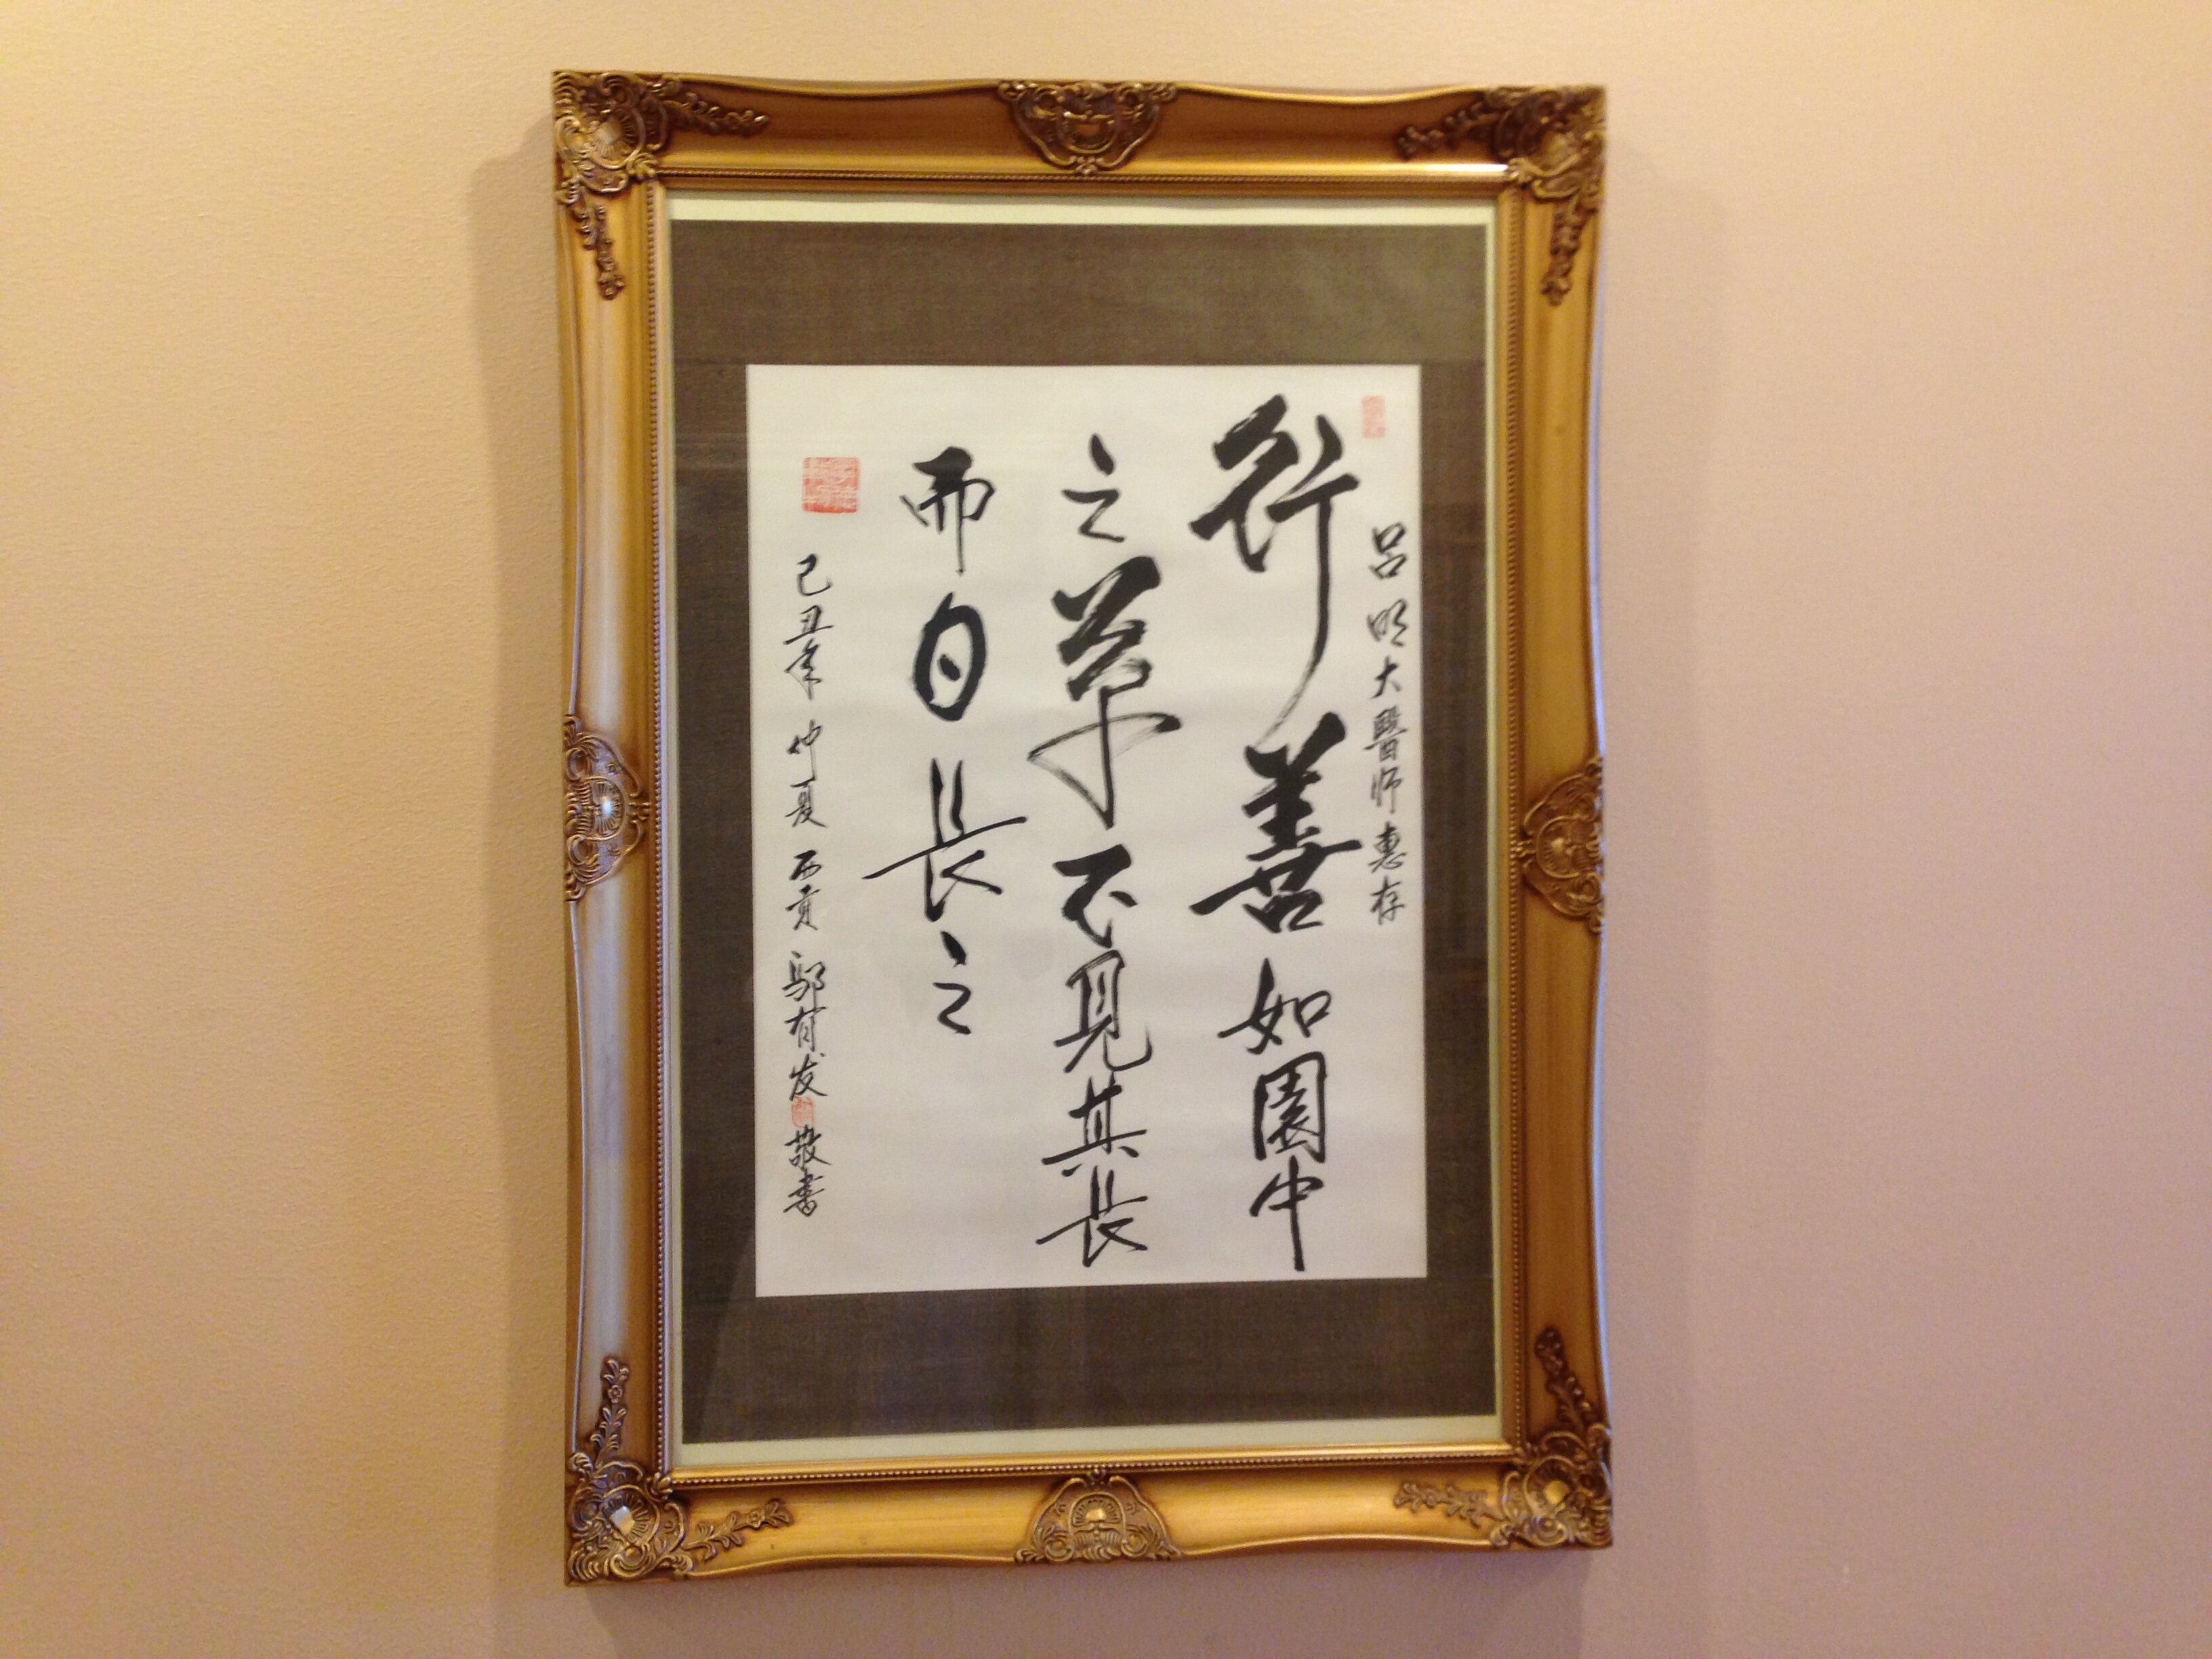 呂明大醫师惠存
行善如園中
之草不見其長
而日長之
己丑年仲夏西贡鄔有发敬書